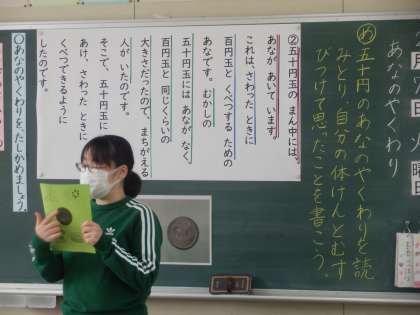 あなのやくわり
め 五十円のあなのやくわりを読
みとり、自分の体けんとむす
びつけて思ったことを書こう。
②五十円玉の まん中には、
あなが あいています
これは、さわった ときに
百円玉と くべつする ための
あなです。むかしの
五十円玉には あなが なく、
百円玉と 同じくらいの
大きさだったので、まちがえる
人が いたのです。
そこで、五十円玉に
あなを
あけ、さわった ときに
くべつできるように
したのです。
○あなのやくわりを、たしかめましょう。